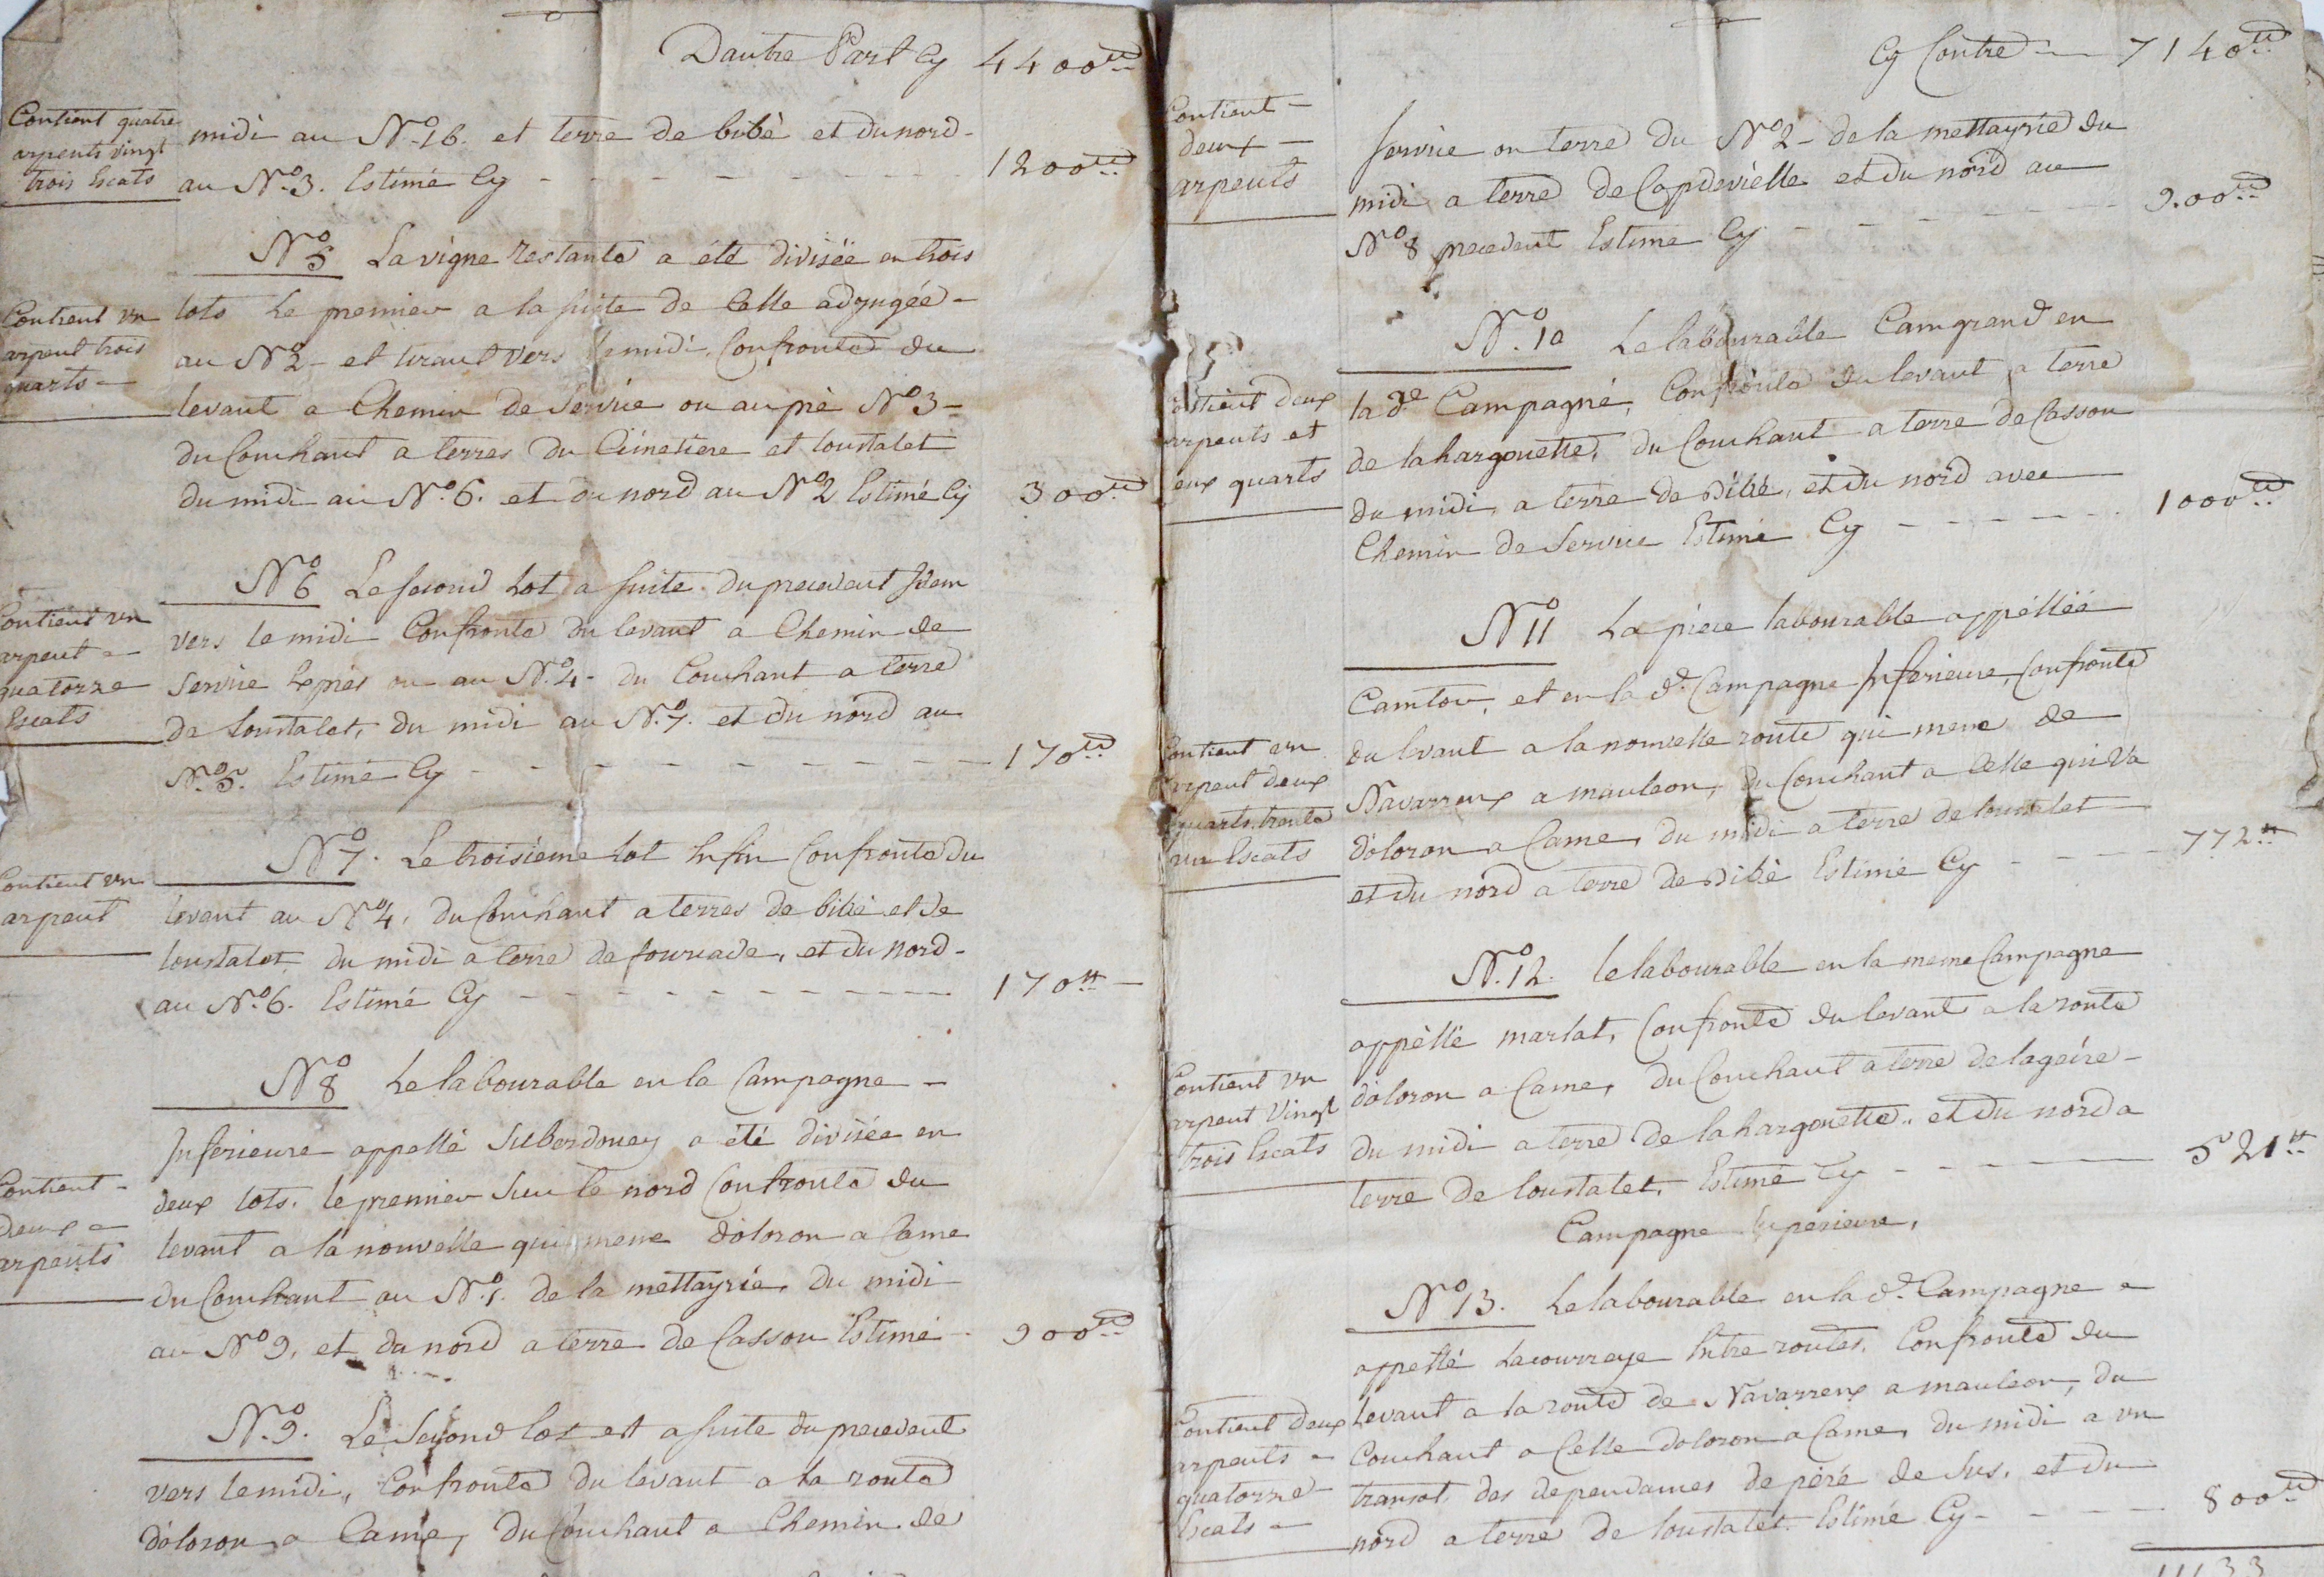 Dautre Part Cy 4400tt
Contient quatre
arpents vingt
trois Escats
midi au No. 16. et terre de bibé et du nord -
au No. 3. Estimé Cy - - - - - - 1200tt
No 5 La vigne restante a été divisée en trois
Contient vn
arpent trois
quarts -
lots Le premier a la suite de Celle adjugée -
au No 2 - et tirant vers le midi, Confronte du
levant a Chemin de Service ou au piè No 3 -
du Couchant a terres du Cimetiere et loustalet
du midi au No. 6. et du nord au No 2 Estimé Cy 300tt
No 6 Le second Lot a suite du precedent Idem
Contient vn
arpent -
quatorze
Escats
vers le midi Confronte du levant a Chemin de
Service Exprés ou au No. 4 - du Couchant a terre
de Loustalet, du midi au No. 7. et du nord au
No. 5. Estimé Cy - - - - - - - - 170tt
No 7. Le troisieme Lot Enfin Confronte du
Contient vn
arpent
levant au No 4, du Couchant a terres de bibé et de
loustalet, du midi a terre de fourcade, et du nord -
au No. 6. Estimé Cy - - - - - - - - 170tt -
No 8 Le labourable en la Campagne -
Inferieure appellé Suberdmey a été divisée en
Contient -
deux -
arpents
deux lots. le premier Sur le nord Confronte du
levant a la nouvelle qui mene d'oloron a Came
du Couchant au No. 1. de la mettayrie, du midi
au No 9, et du nord a terre de Casson Estimé - 900tt
No. 9. Le Second lot est a suite du precedent
vers le midi, Confronte du levant a la route
d'oloron a Came, du Couchant a Chemin de
Cy Contre - 7140tt
Contient -
deux -
arpents
service ou terre du No 2 - de la mettayrie du
midi a terre de Capdevielle et du nord au
No 8 precedent Estimé Cy - - - - - - 900tt
No. 10 Le labourable Camgrand en
Contient deux
arpents et
deux quarts
la de Campagne, Confronte du levant a terre
de lahargouette, du Couchant a terre de Casson
du midi, a terre de Bibé, et du nord avec
Chemin de Service Estimé Cy - - - - - - 1000tt
No 11 La piece labourable appellée
Camtou, et en la de. Campagne Inferieure, Confronte
Contient vn
arpent deux
quarts trente
vn Escats
du levant a la nouvelle route qui mene de
Navarreux a mauleon, du Couchant a Celle qui va
d'oloron a Came, du midi a terre de loustalet
et du nord a terre de Bibé Estimé Cy - - - - 772tt
No. 12. le labourable en la meme Campagne
appellé marlat, Confronte du levant a la route
Contient vn
arpent vingt
trois Escats
d'oloron a Came, du Couchant a terre de lagoire -
du midi a terre de lahargouette, et du nord a
terre de loustalet, Estimé Cy - - - - 521tt
Campagne Superieure,
No 13. Le labourable en la de. Campagne -
appellé Lacourreye Entre routes, Confronte du
Contient deux
arpents -
quatorze
Escats -
levant a la route de Navarreux a mauleon, du
Couchant a Celle doloron a Came, du midi a vn
transot des dependames de péré de Sus, et du
nord a terre de loustalet Estimé Cy - - - - 800tt
11133